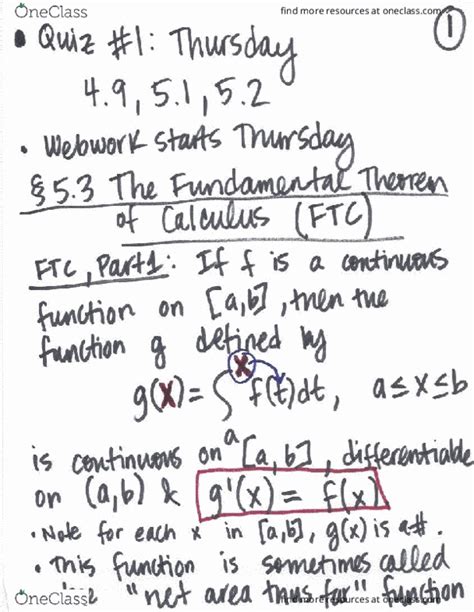 OneClass
find more resources at oneclass.com
①
• Quiz #1: Thursday
4.9, 5.1, 5.2
• Webwork starts Thursday
§ 5.3 The Fundamental Theorem
of Calculus (FTC)
FTC, Part 1: If f is a continuous
function on [a,b], then the
function g defined by
g(x) = ∫ₐˣ f(t)dt, a ≤ x ≤ b
is continuous on [a,b], differentiable
on (a,b) & g'(x) = f(x)
• Note for each x in [a,b], g(x) is a #.
• This function is sometimes called
"net area thus far" function
OneClass
find more resources at oneclass.com